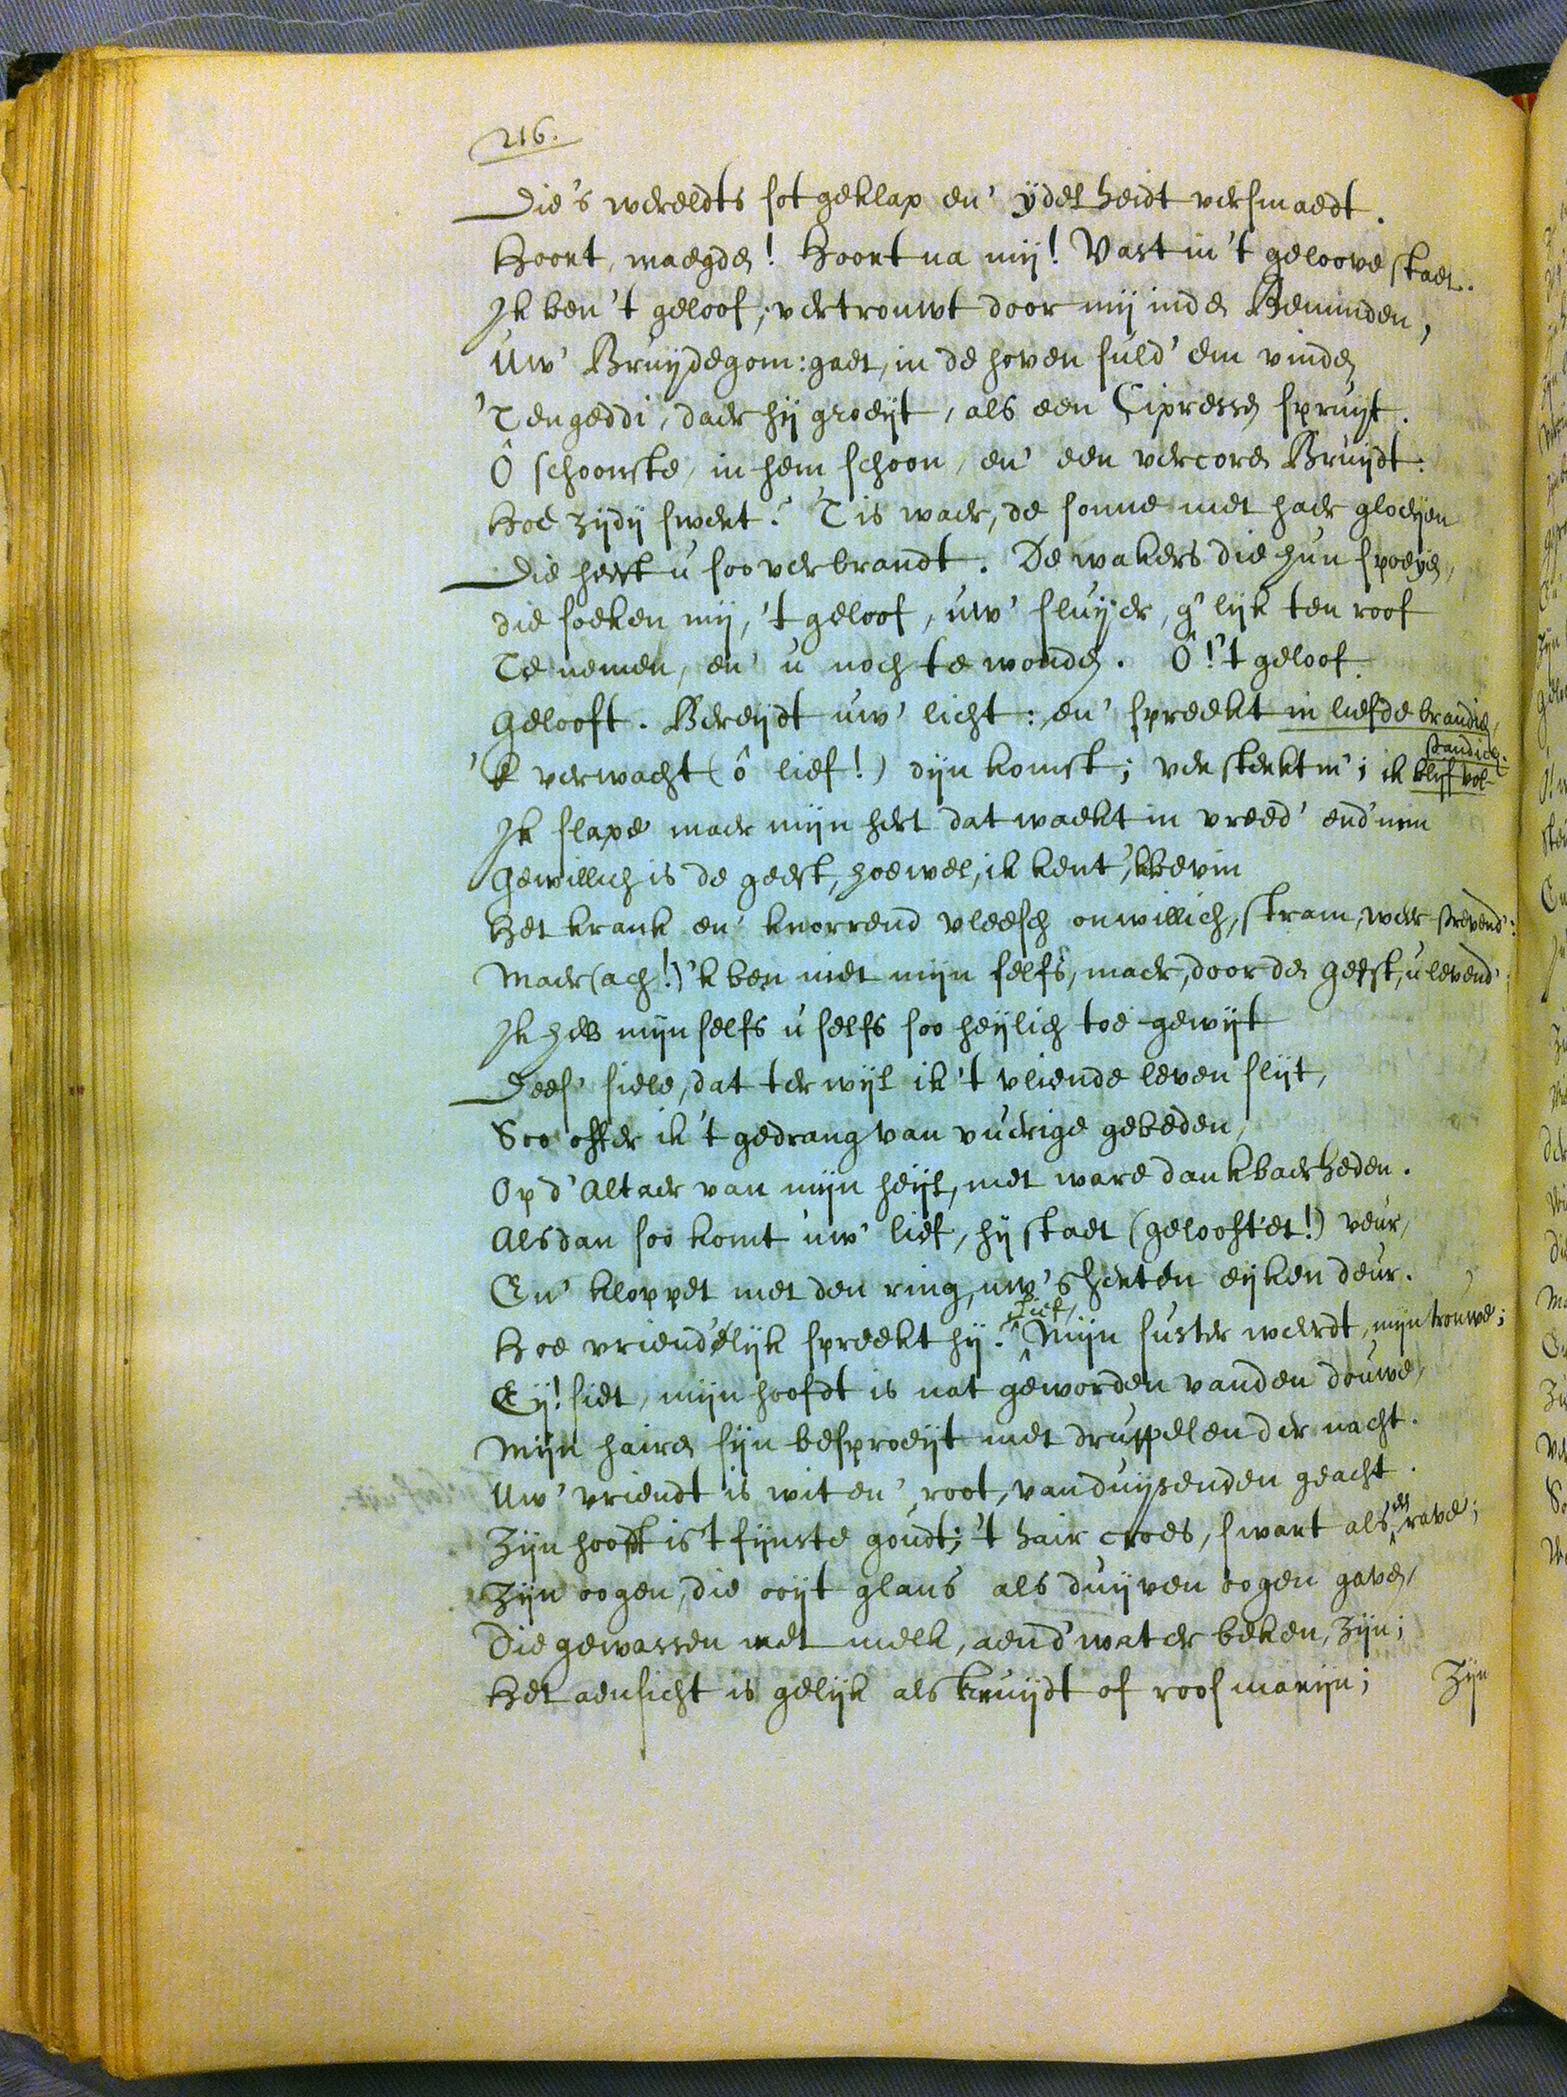 216.
Die's wereldts sot geklap en' ÿdelheidt versmaedt.
Hoort, maegden! Hoort na mij! Vast in 't geloove staet.
Ik ben 't geloof; vertrouwt door mij inden Beminden,
Uw' Bruijdegom: gaet, in de hoven suld' em vinden
'T engeddi, daer hij groeijt, als een Cipressen spruijt.
Ô schoonste, in hem schoon, en' een vercoren Bruijdt:
Hoe zijdij swert? 'T is waer, de sonne met haer gloeijen
Die heeft u soo verbrandt. De wakers die hun spoeyen,
die soeken mij, 't geloof, uw' sluijer, g'lijk ten roof
Te nemen, en' u noch te wonden. Ô! 't geloof
Gelooft. Bereijdt uw' licht: en' spreekt in liefde brandich,
'K verwacht (ô lief!) dijn komst; versterkt m'; ik blijf vol-
standich.
Ik slape maer mijn hert dat waekt in vreed' end' min
Gewillich is de geest, hoewel, ik ken't, 'k bevin
Het krank en' knorrend vleesch onwillich, stram, weer strevend':
Maer (ach!) 'k ben niet mijn selfs, maer, door den geest, u levend'
Ik heb mijn selfs u selfs soo heijlich toe gewijt
Dees' siele, dat terwijl ik 't vliende leven slijt,
Soo offer ik 't gedrang van vuerige gebeden,
Op d' Altaer van mijn heijl, met ware dankbaerheden.
Alsdan soo komt uw' lief, hij staet (gelooft et!) veur,
En' kloppet met den ring, uw' s'herten eijken deur.
Hoe vriend'elijk spreekt hij. Lief, Mijn suster weerdt, mijn trouwe;
Eij! siet, mijn hoofdt is nat geworden vanden douwe,
Mijn hairen sijn besproeijt met druppelen der nacht.
Uw' vriendt is wit en' root, van duijsenden geacht.
Zijn hoofdt is 't fijnste goudt; 't hair croes, swart als en rave;
Zijn oogen, die ooijt glans als duijven oogen gaven,
Die gewassen met melk, aend' water beken, zijn;
Het aensicht is gelijk als kruijdt of roosmarijn;
Zijn